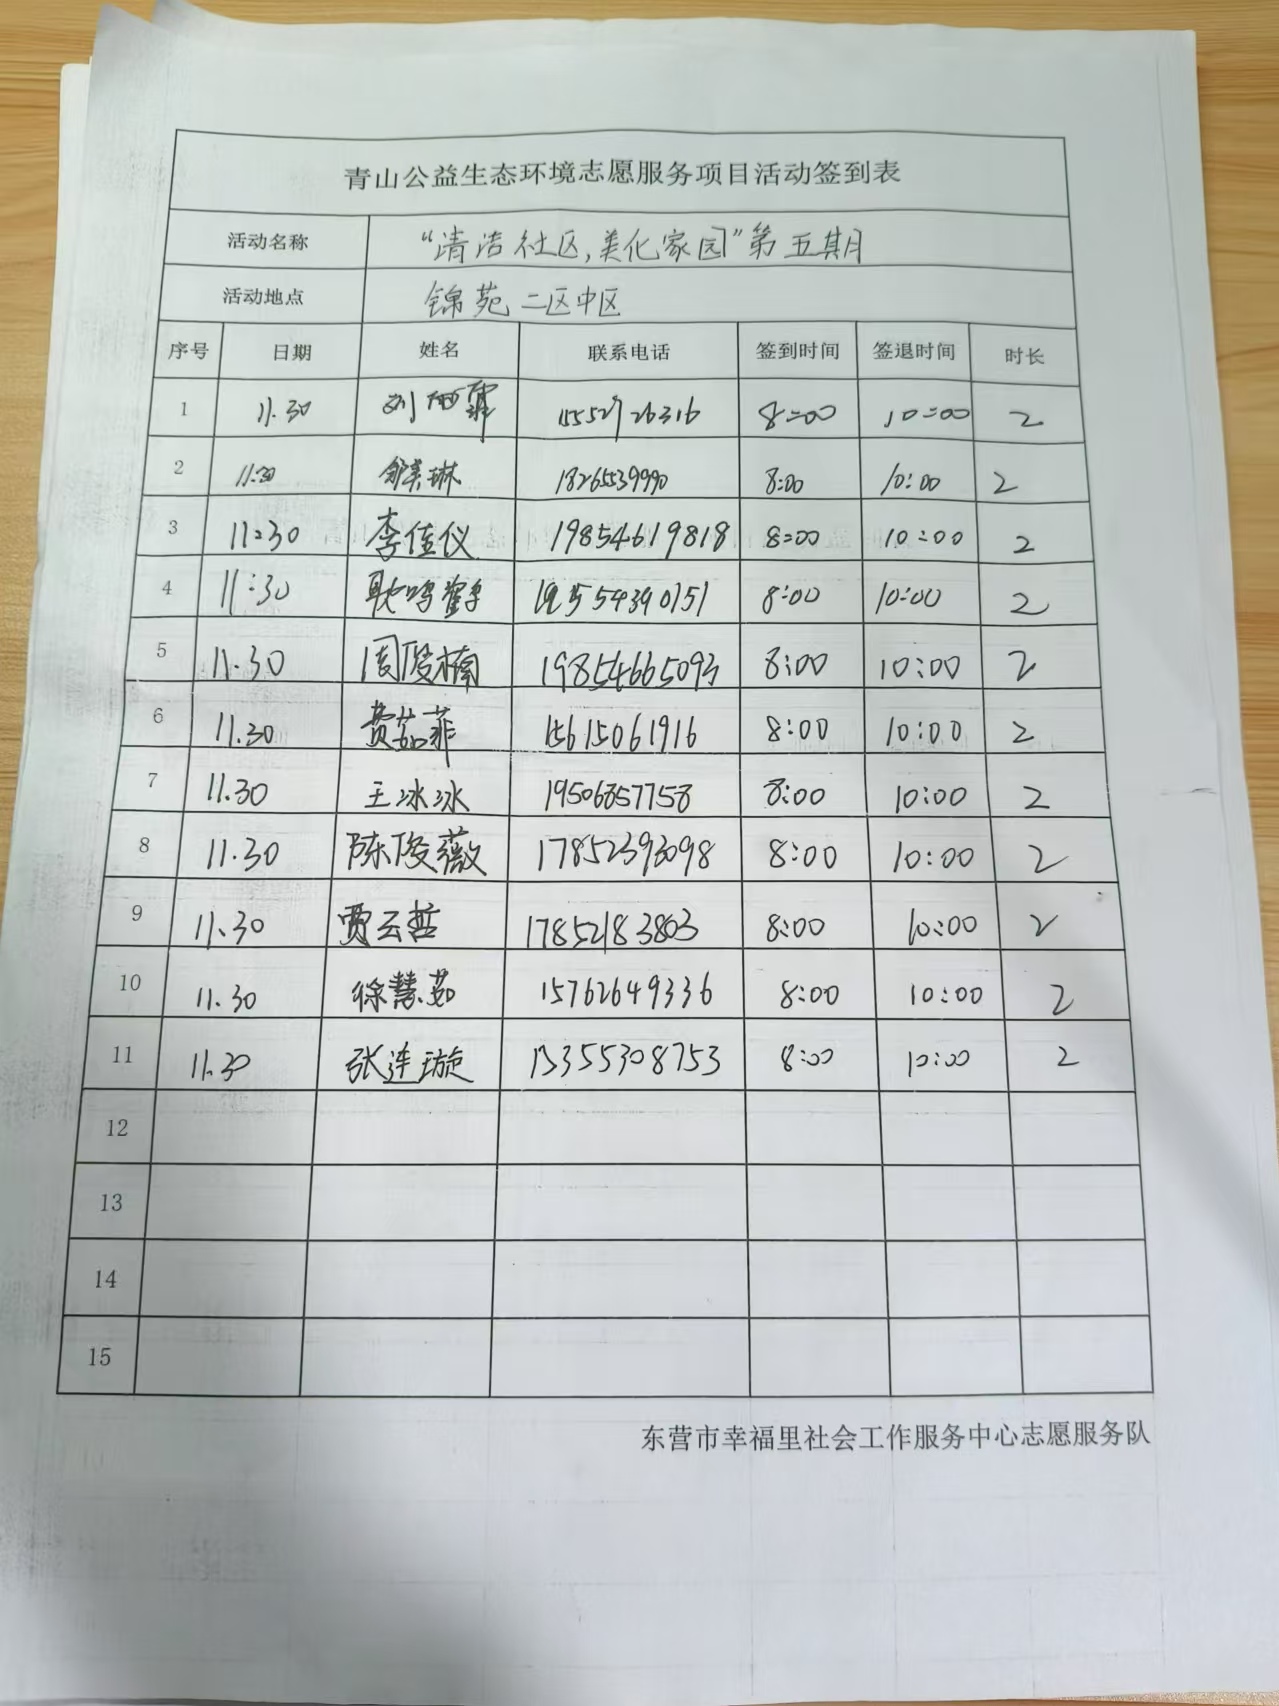 青山公益生态环境志愿服务项目活动签到表
活动名称 "清洁社区,美化家园"第五期
活动地点 锦苑二区中区
序号 日期 姓名 联系电话 签到时间 签退时间 时长
1 11.30 刘 霏 15527726316 8:00 10:00 2
2 11.30 邹美琳 18265539990 8:00 10:00 2
3 11:30 李佳仪 19854619818 8:00 10:00 2
4 11:30 耿鸣鹤 8:00 10:00 2
5 11.30 周俊楠 19854665093 8:00 10:00 2
6 11.30 费茹菲 15615061916 8:00 10:00 2
7 11.30 王冰冰 19506857758 8:00 10:00 2
8 11.30 陈俊薇 17852393098 8:00 10:00 2
9 11.30 贾云哲 17852183803 8:00 10:00 2
10 11.30 徐慧茹 15762649336 8:00 10:00 2
11 11.30 张连璇 13355308753 8:00 10:00 2
12
13
14
15
东营市幸福里社会工作服务中心志愿服务队